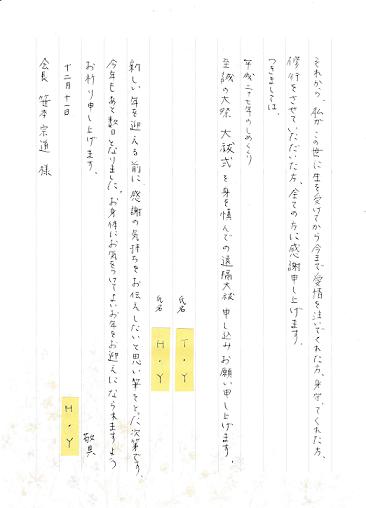 それから、私がこの世に生を受けてから今まで愛情を注いでくれた方、身守ってくれた方、
修行をさせていただいた方、全ての方に感謝申し上げます。
つきましては、
平成二十七年のしめくくり
至誠の大祭 大祓式を身を慎んでの遠隔大祓申し込みお願い申し上げます。
氏名 T・Y
氏名 H・Y
新しい年を迎える前に、感謝の気持ちをお伝えしたいと思い筆をとった次第です。
今年もあと数日となりました。お身体にお気をつけてよいお年をお迎えになられますよう
お祈り申し上げます。
敬具
十二月十一日
H・Y
会長 笹本宗道 様